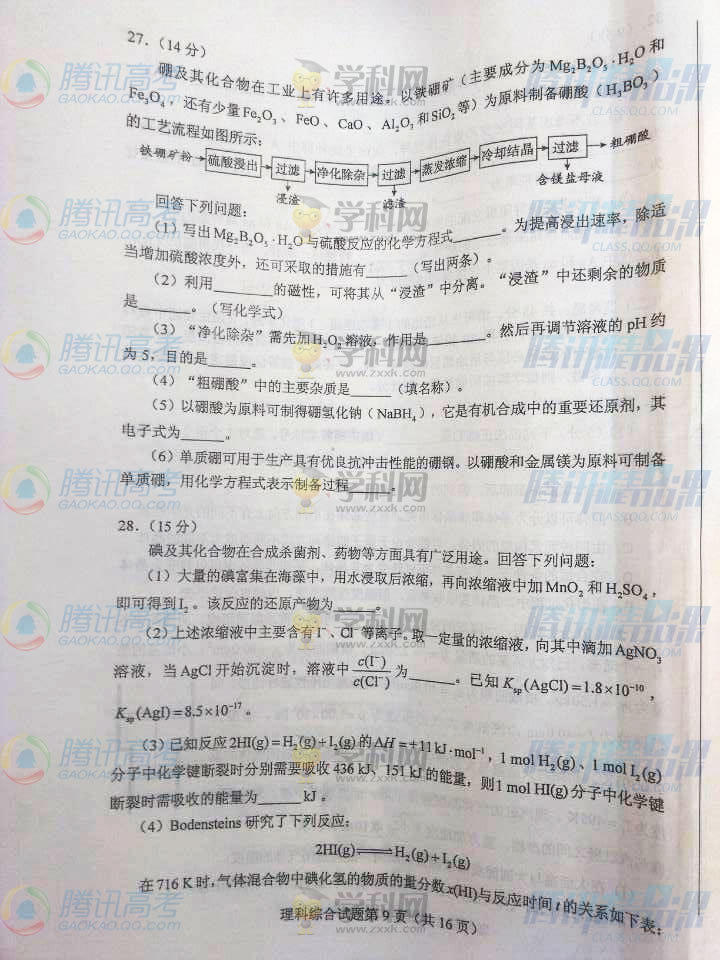 27.（14分）
硼及其化合物在工业上有许多用途。以铁硼矿（主要成分为Mg₂B₂O₅·H₂O和
Fe₃O₄，还有少量Fe₂O₃、FeO、CaO、Al₂O₃和SiO₂等）为原料制备硼酸（H₃BO₃）
的工艺流程如图所示：
铁硼矿粉→硫酸浸出→过滤→净化除杂→过滤→蒸发浓缩→冷却结晶→过滤→粗硼酸
浸渣 滤渣 含镁盐母液
回答下列问题：
（1）写出Mg₂B₂O₅·H₂O与硫酸反应的化学方程式______。为提高浸出速率，除适
当增加硫酸浓度外，还可采取的措施有______（写出两条）。
（2）利用______的磁性，可将其从“浸渣”中分离。“浸渣”中还剩余的物质
是______。（写化学式）
（3）“净化除杂”需先加H₂O₂溶液，作用是______。然后再调节溶液的pH约
为5，目的是______。
（4）“粗硼酸”中的主要杂质是______（填名称）。
（5）以硼酸为原料可制得硼氢化钠（NaBH₄），它是有机合成中的重要还原剂，其
电子式为______。
（6）单质硼可用于生产具有优良抗冲击性能的硼钢。以硼酸和金属镁为原料可制备
单质硼，用化学方程式表示制备过程______。
28.（15分）
碘及其化合物在合成杀菌剂、药物等方面具有广泛用途。回答下列问题：
（1）大量的碘富集在海藻中，用水浸取后浓缩，再向浓缩液中加MnO₂和H₂SO₄，
即可得到I₂。该反应的还原产物为______。
（2）上述浓缩液中主要含有I⁻、Cl⁻等离子。取一定量的浓缩液，向其中滴加AgNO₃
溶液，当AgCl开始沉淀时，溶液中c(I⁻)/c(Cl⁻)为______。已知Ksp(AgCl)=1.8×10⁻¹⁰，
Ksp(AgI)=8.5×10⁻¹⁷。
（3）已知反应2HI(g)=H₂(g)+I₂(g)的ΔH=+11kJ·mol⁻¹，1 mol H₂(g)、1 mol I₂(g)
分子中化学键断裂时分别需要吸收436 kJ、151 kJ的能量，则1 mol HI(g)分子中化学键
断裂时需吸收的能量为______kJ。
（4）Bodensteins研究了下列反应：
2HI(g)⇌H₂(g)+I₂(g)
在716 K时，气体混合物中碘化氢的物质的量分数x(HI)与反应时间t的关系如下表：
理科综合试题第9页（共16页）
腾讯高考
GAOKAO.QQ.COM
学科网
www.zxxk.com
腾讯精品课
CLASS.QQ.COM